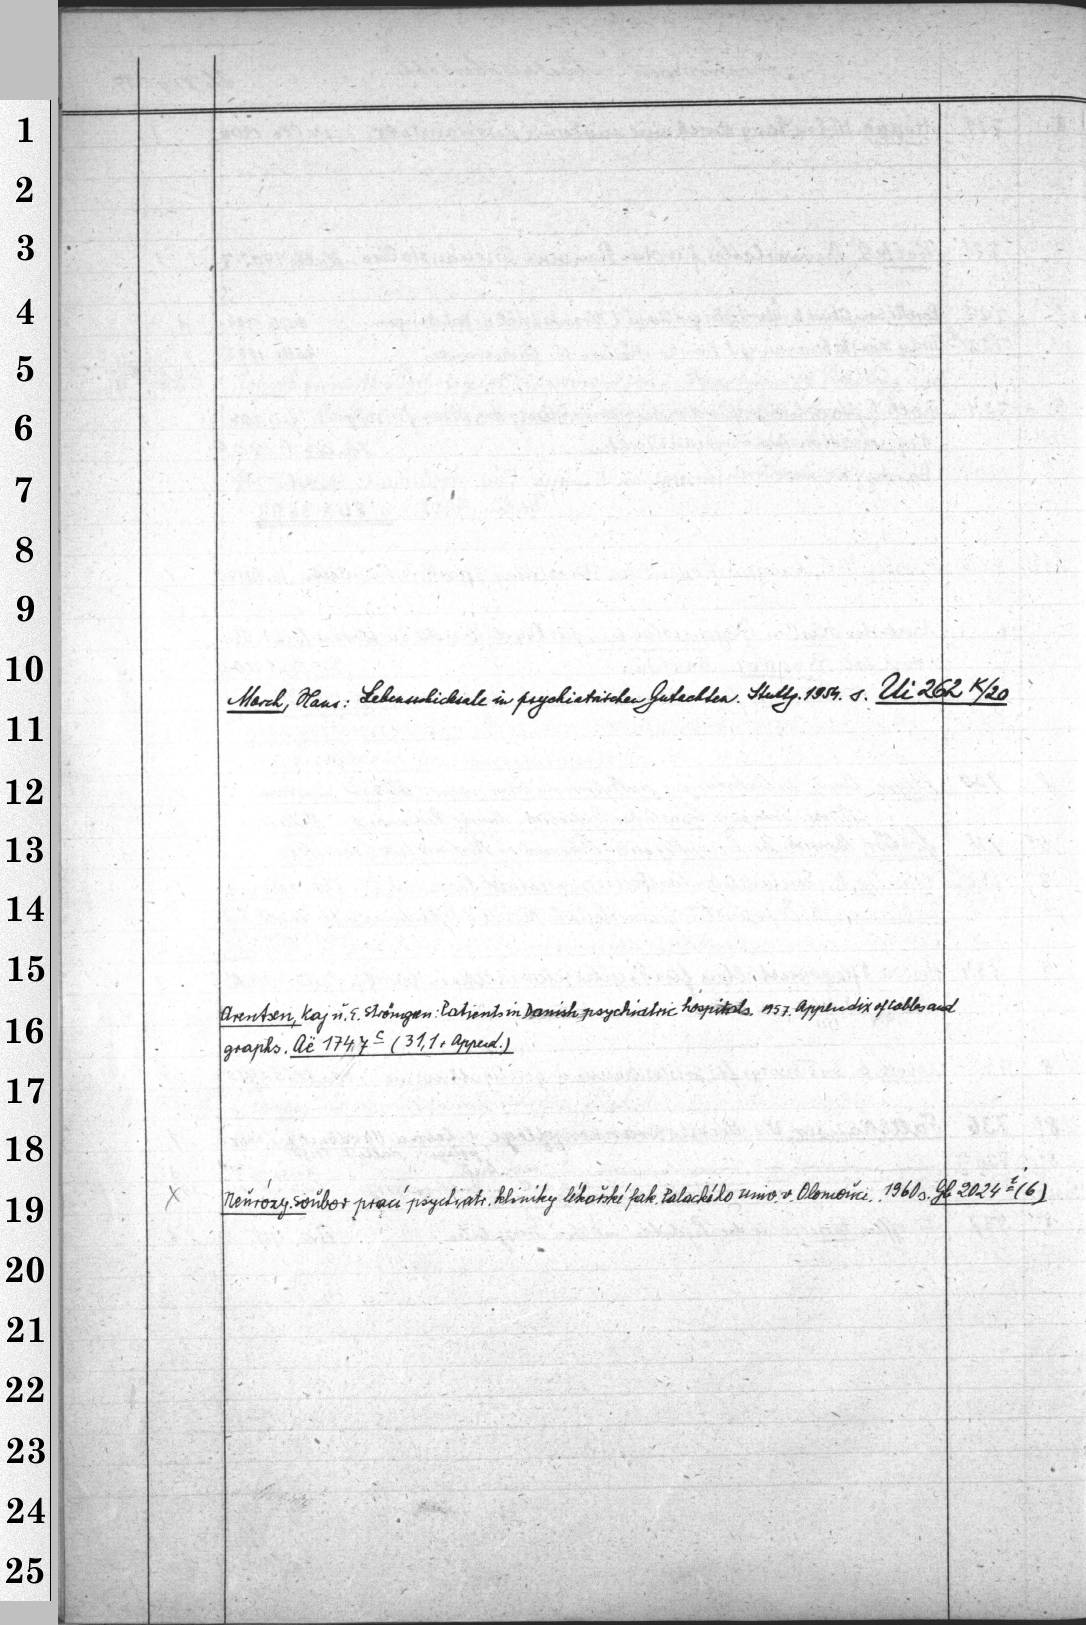 1
2
3
4
5
6
7
8
9
10
March, Hans: Lebensschicksale in psychiatrischen Gutachten. Stuttg. 1954. s. Ui 262 K/20
11
12
13
14
15
Arentsen, Kaj u. E. Strömgren: Patients in Danish psychiatric hospitals. 1957. Appendix of tables and
16
graphs. Aë 1747 c (31,1 + Append.)
17
18
X Neurózy. Soubor prací psychiatr. kliniky lékařské fak. Palackého univ. v. Olomouci. 1960 s. Gh 2024 i (6)
19
20
21
22
23
24
25